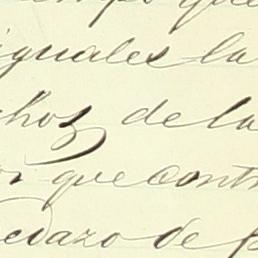 que
iguales la
choz de la
or que contr
edazo de p